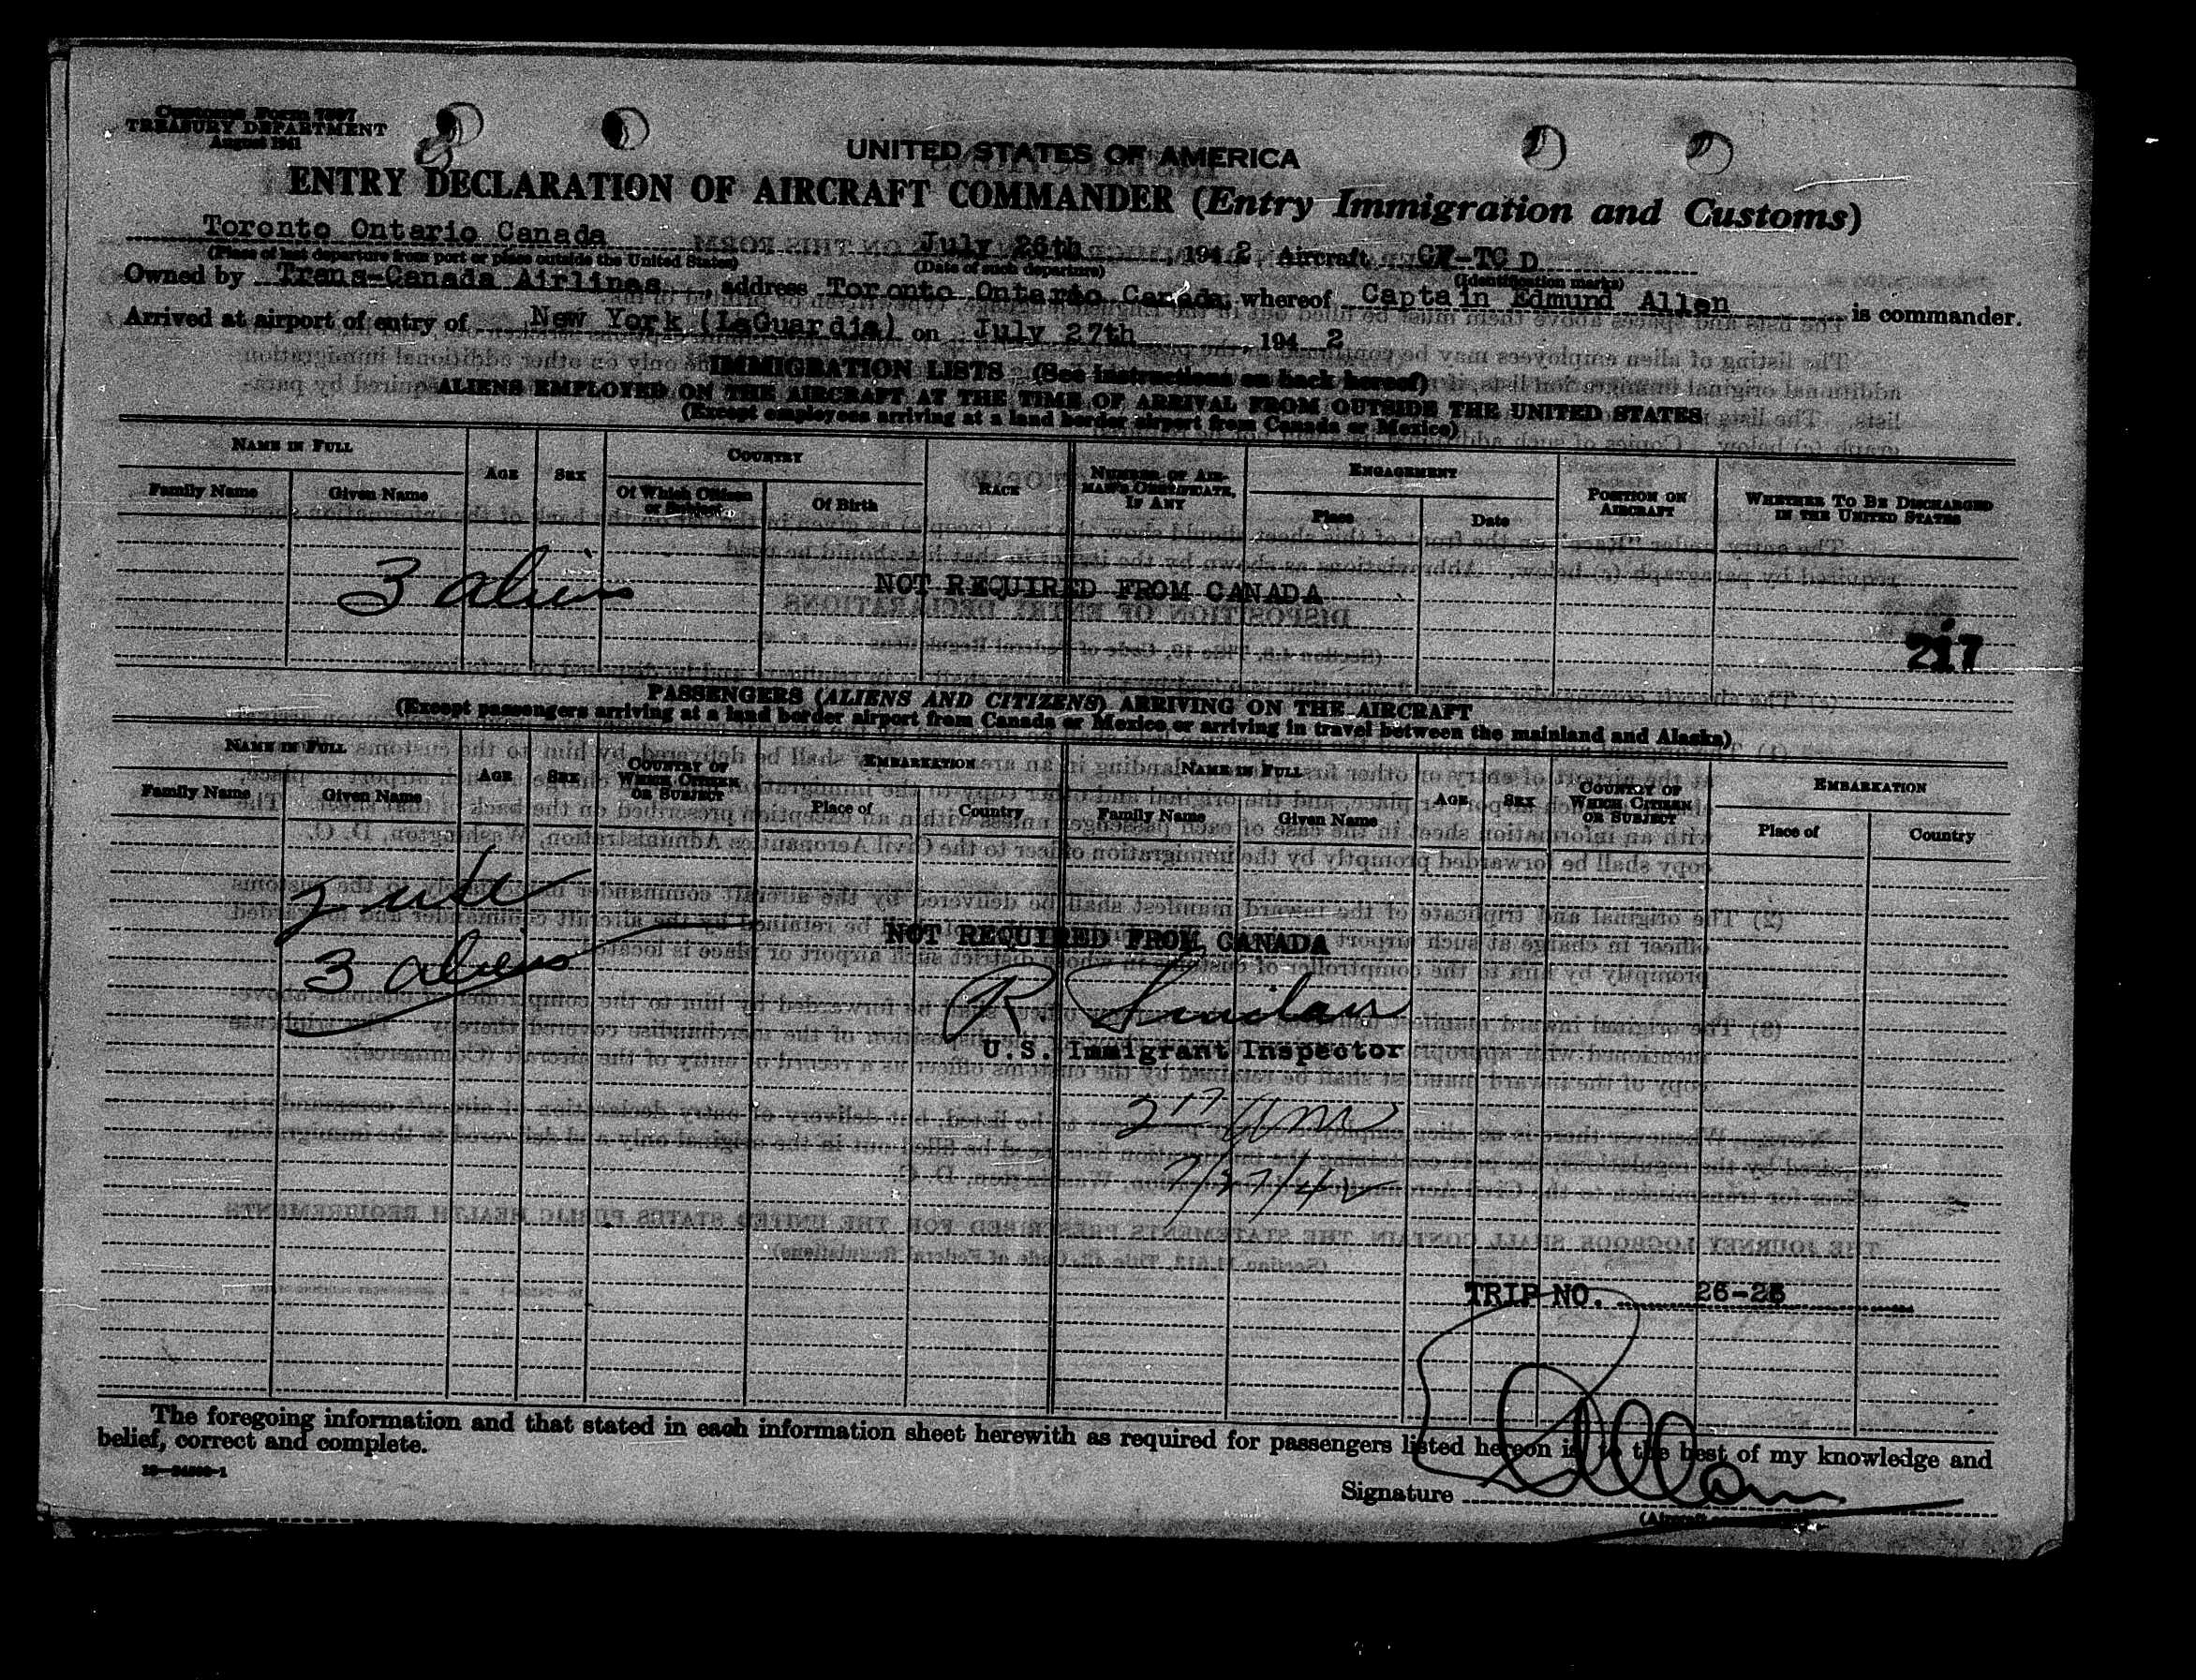 Customs Form 7507
TREASURY DEPARTMENT
August 1941
UNITED STATES OF AMERICA
ENTRY DECLARATION OF AIRCRAFT COMMANDER (Entry Immigration and Customs)
Toronto Ontario Canada July 26th, 1942, Aircraft CF-TC D
(Place of last departure from port or place outside the United States) (Date of such departure) (Identification marks)
Owned by Trans-Canada Airlines, address Toronto Ontario Canada, whereof Captain Edmund Allen is commander.
Arrived at airport of entry of New York (LaGuardia) on July 27th, 194 2
IMMIGRATION LISTS (See instructions on back hereof)
ALIENS EMPLOYED ON THE AIRCRAFT AT THE TIME OF ARRIVAL FROM OUTSIDE THE UNITED STATES
(Except employees arriving at a land border airport from Canada or Mexico)
NAME IN FULL AGE SEX COUNTRY RACE NUMBER OF AIRMAN'S CERTIFICATE, IF ANY ENGAGEMENT POSITION ON AIRCRAFT WHETHER TO BE DISCHARGED IN THE UNITED STATES
Family Name Given Name Of Which Citizen or Subject Of Birth Place Date
3 aliens NOT REQUIRED FROM CANADA
217
PASSENGERS (ALIENS AND CITIZENS) ARRIVING ON THE AIRCRAFT
(Except passengers arriving at a land border airport from Canada or Mexico or arriving in travel between the mainland and Alaska)
NAME IN FULL AGE SEX COUNTRY OF WHICH CITIZEN OR SUBJECT EMBARKATION NAME IN FULL AGE SEX COUNTRY OF WHICH CITIZEN OR SUBJECT EMBARKATION
Family Name Given Name Place of Country Family Name Given Name Place of Country
3 aliens NOT REQUIRED FROM CANADA
R. Sinclair
U.S. Immigrant Inspector
2 17 AM
7/27/42
TRIP NO. 26-26
The foregoing information and that stated in each information sheet herewith as required for passengers listed hereon is, to the best of my knowledge and
belief, correct and complete.
Signature Allen